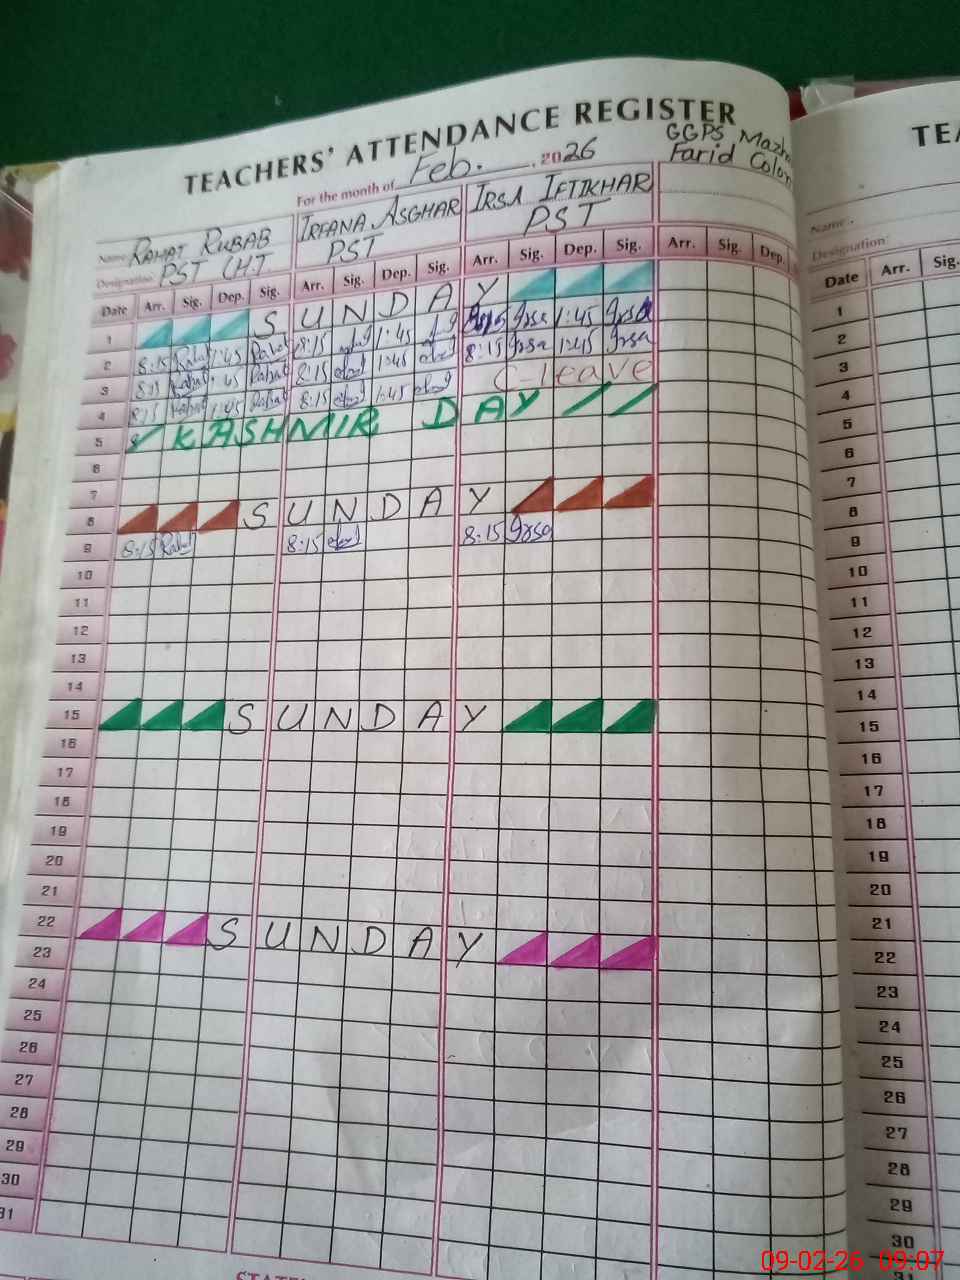 TEACHERS' ATTENDANCE REGISTER
TEA
For the month of Feb. , 2026
GGPS Mazh
Farid Colon
Name RAHAT RUBAB IRFANA ASGHAR IRSA IFTIKHAR
Designation PST (H.T PST PST
Name .
Designation:
Date Arr. Sig. Dep. Sig. Arr. Sig. Dep. Sig. Arr. Sig. Dep. Sig. Arr. Sig. Dep.
Date Arr. Sig.
1 S U N D A Y
2 8:15 Rahat 1:45 Rahat 8:15 1:45 Irsa 1:45 Irsa
3 8:15 Rahat 1:45 Rahat 8:15 1:45 8:15 Irsa 1:45 Irsa
4 8:15 Rahat 1:45 Rahat 8:15 1:45 C-leave
5 KASHMIR DAY
6
7
8 S U N D A Y
9 8:15 Rahat 8:15 8:15 Irsa
10
11
12
13
14
15 S U N D A Y
16
17
18
19
20
21
22 S U N D A Y
23
24
25
26
27
28
29
30
31
1
2
3
4
5
6
7
8
9
10
11
12
13
14
15
16
17
18
19
20
21
22
23
24
25
26
27
28
29
30
09-02-26 09:07